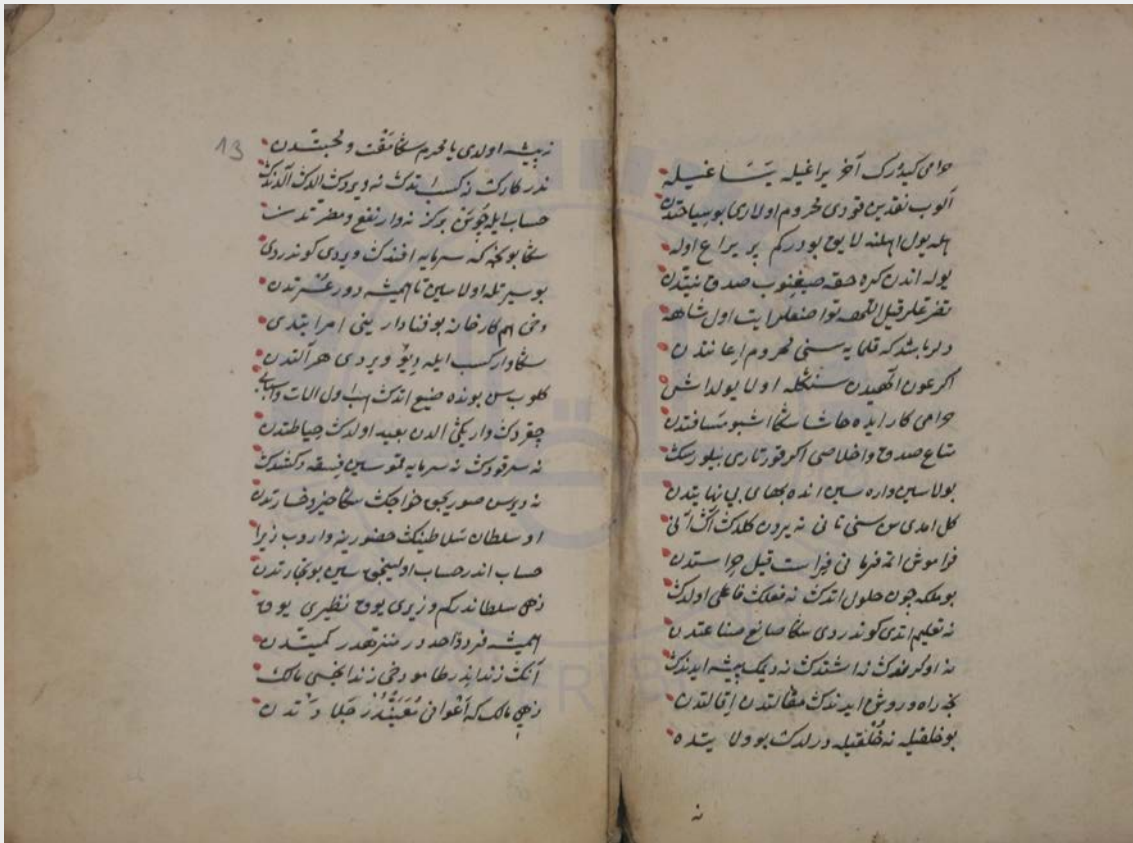 حرامی کیدرک آخر یراغیله یتساغیله
آلوب نقدین قودی محروم اولاری بو سیاحتدن
هله یول اهلنه لایق بودرکم بر یراغ اوله
یوله اندن کره حقه صیغنوب صدق نیتدن
تضرعلر قیل اللهه تواضعلر ایت اول شاهه
اولا باشد که قلمایه سنی محروم اعانتدن
اکر عون الهیدن سنکله اولا یولداش
حرامی کار ایده حاشا سکا اشبو مسافتدن
متاع صدق و اخلاصی اکر قورتاری بیلورسک
بولاسین واره سین انده بهای بی نهایتدن
کل امدی سن سنی تانی نه یردن کلدک آک آنی
فراموش اتمه فرمانی فراست قیل حراستدن
بو ملکه چون حلول اتدک نه فعلک فاعلی اولدک
نه تعلیم اتدی کوندردی سکا صانع صناعتدن
نه اوکرندک نه اشتدک نه دیک پیشه ایدندک
نجه راه و روش ایدندک مقالتدن
بو خلقیله نه خلقیله درلدک بو ولایتده
نه
13
نه پیشه اولدی یا محرم سکا مقت و محبتدن
ندر کارک نه کسب اتدک نه ویردک الدک آلدندک
حساب ایله نه وار نفع و مضرتدن
سکا بونجه که سرمایه افندک ویردی کوندردی
بو سیرتله اولاسین تا همیشه دور عسرتدن
دخی هم کارخانه بو فنا دارینی امر ایتدی
سکا وار کسب ایله دیو ویردی هر آلتدن
کلوب سن بونده ضیع اتدک اول الات و اسبابی
چقردک واریکی الدن بعید اولدک حیاطتدن
نه سر قودک نه سرمایه قمو سین فسقه دکشدک
نه ویرسن صوریجق خواجک سکا خیر و خسارتدن
او سلطان سلاطینک حضورینه واروب زیرا
حساب اندر حساب اولیجق سین بو تجارتدن
زهی سلطاندرکم وزیری یوق نظیری یوق
همیشه فرد و احددر منزهدر کمیتدن
آنک زندانیدر طامو دخی زندانجسی مالک
زهی مالک که اعوانی معینلر جلادتدن